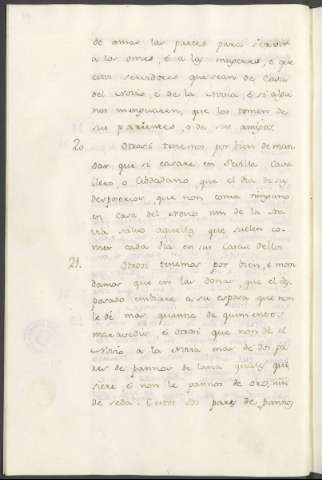 de amas las partes para servir
a los omes, é a las mugeres, é que
estos servidores que sean de casa
del Novio, é de la Novia, é si algu
nos menguaren, que los tomen de
sus parientes, o de sus amigos.
20. Otrosi tenemos por bien de man
dar que si casare en Sevilla Cava
llero, o Cibdadano, que el dia de su
desposorio, que non coma ninguno
en casa del Novio nin de la No
via salvo aquellos que suelen co
mer cada dia en sus casas dellos
21. Otrosi tenemos por bien, é man
damos que en las donas que el des
posado embiare a su esposa que non
le dé mas quantia de quinientos
maravedis, é otrosi que non dé el
Novio a la Novia mas de dos pa
res de pannos de lana quales qui
siere, é non le pannos de oro, nin
de seda. E estos dos pares de pannos